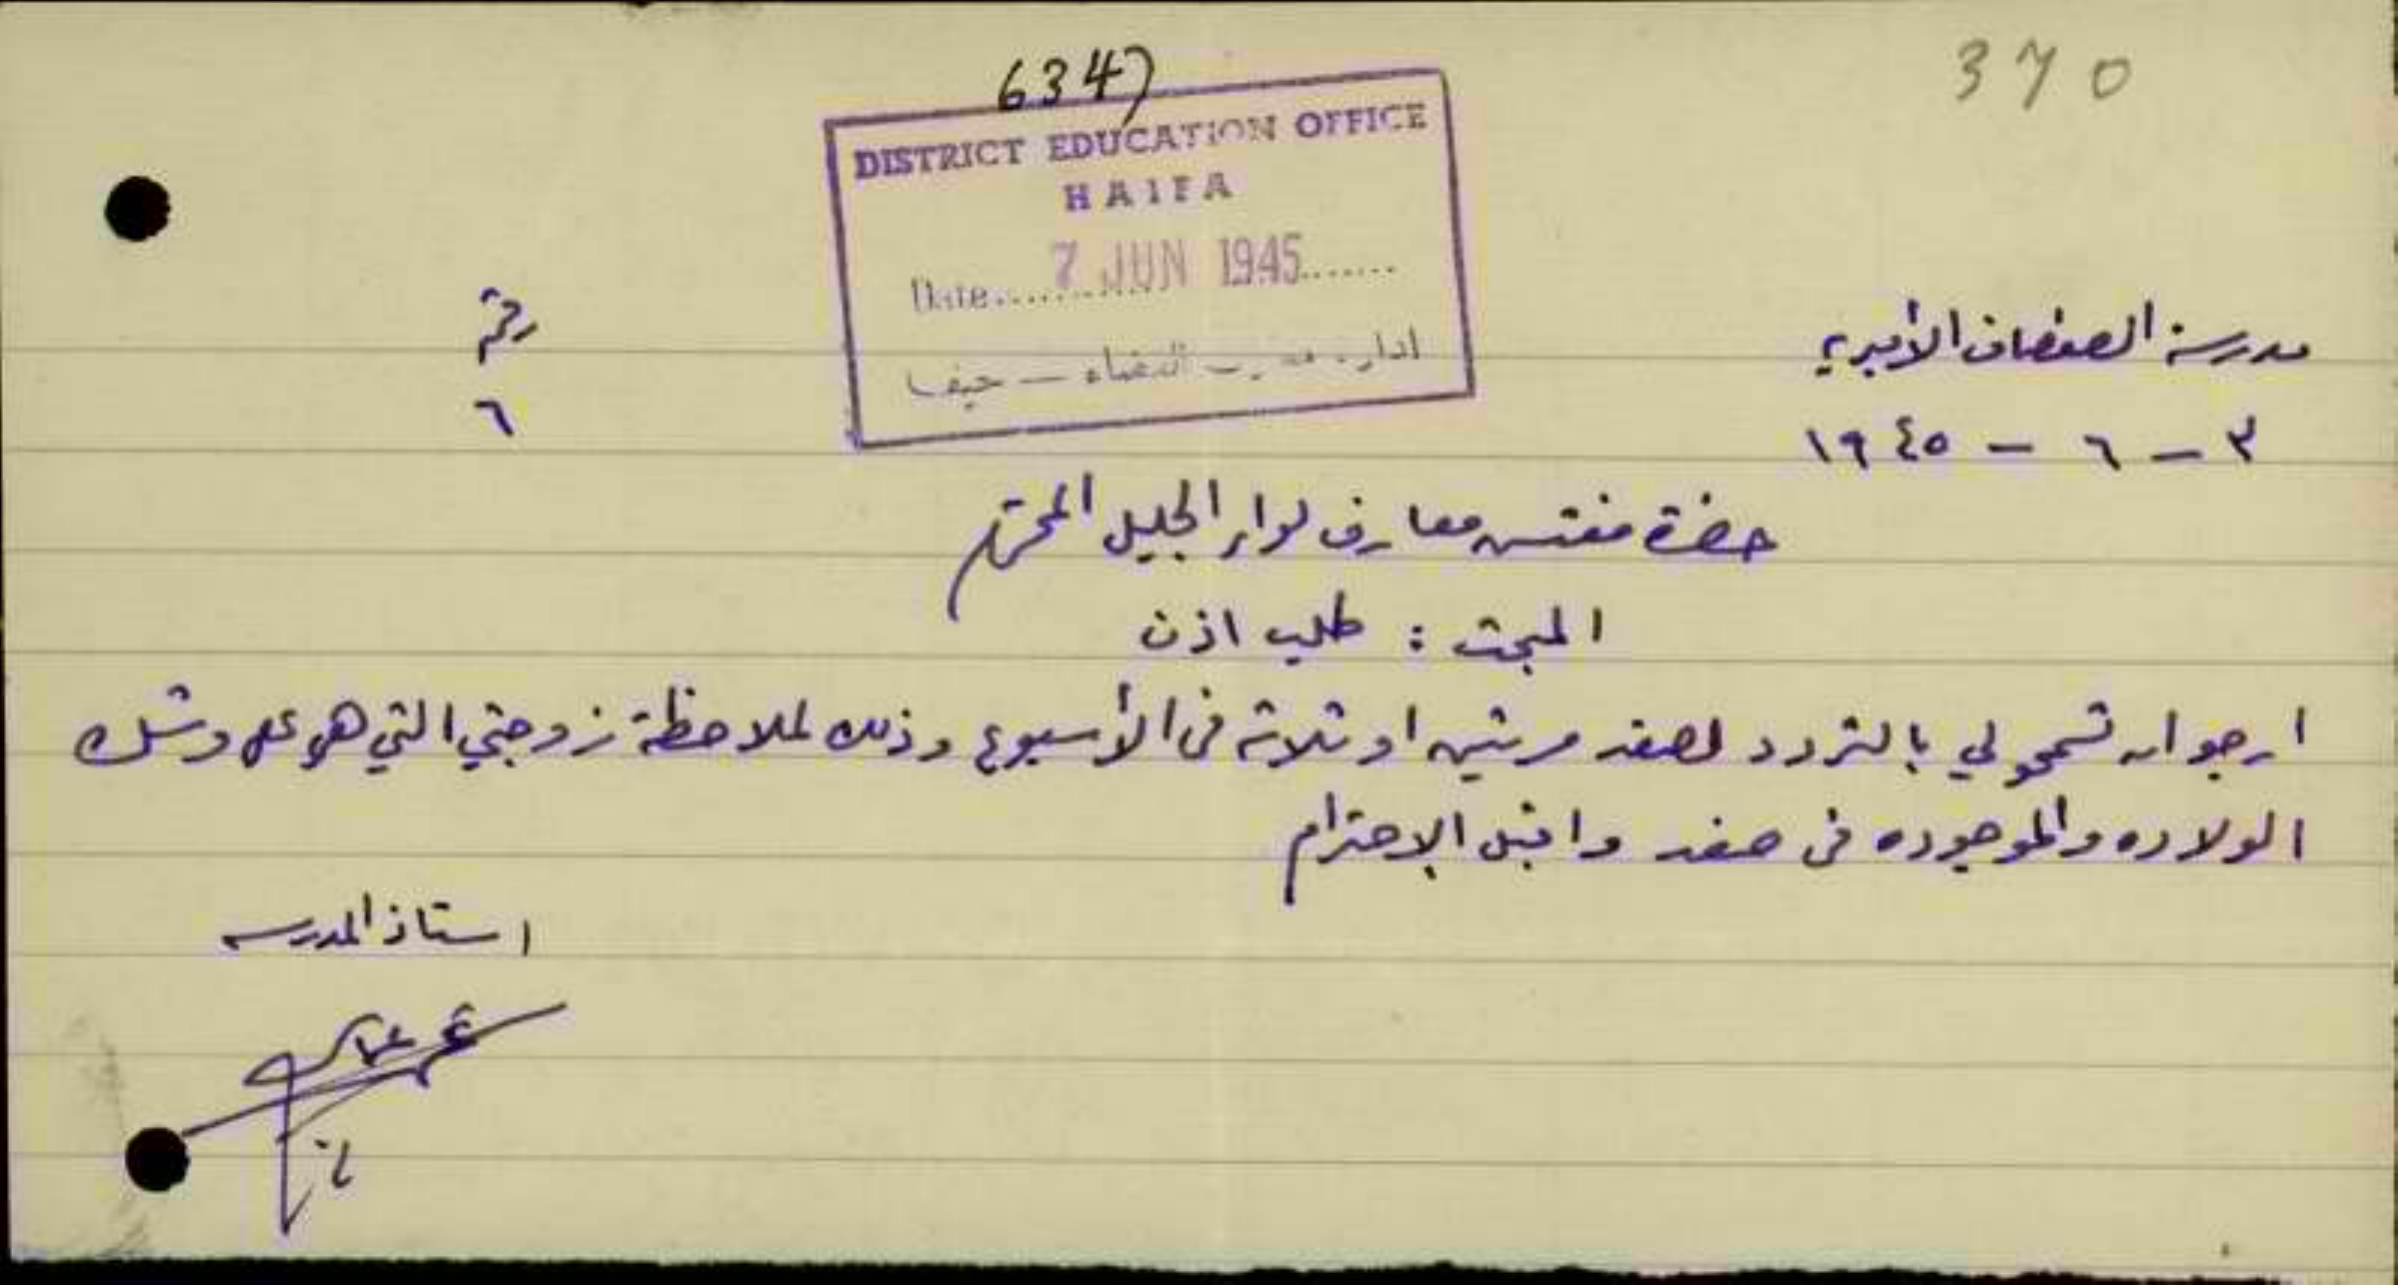 370
6347
DISTRICT EDUCATION OFFICE
HAIFA
Date 7 JUN 1945
ادارة معارف القضاء — حيفا
مدرسة الصفصاف الأميريه
رقم
٣ - ٦ - ١٩٤٥
٦
حضرة مفتش معارف لواء الجليل المحترم
المبحث : طلب اذن
ارجو ان تسمحو لي بالتردد لصفد مرتين او ثلاثة في الأسبوع وذلك لملاحظة زوجتي التي هي على وشك
الولاده والموجوده في صفد واقبل الإحترام
استاذ المدرسه